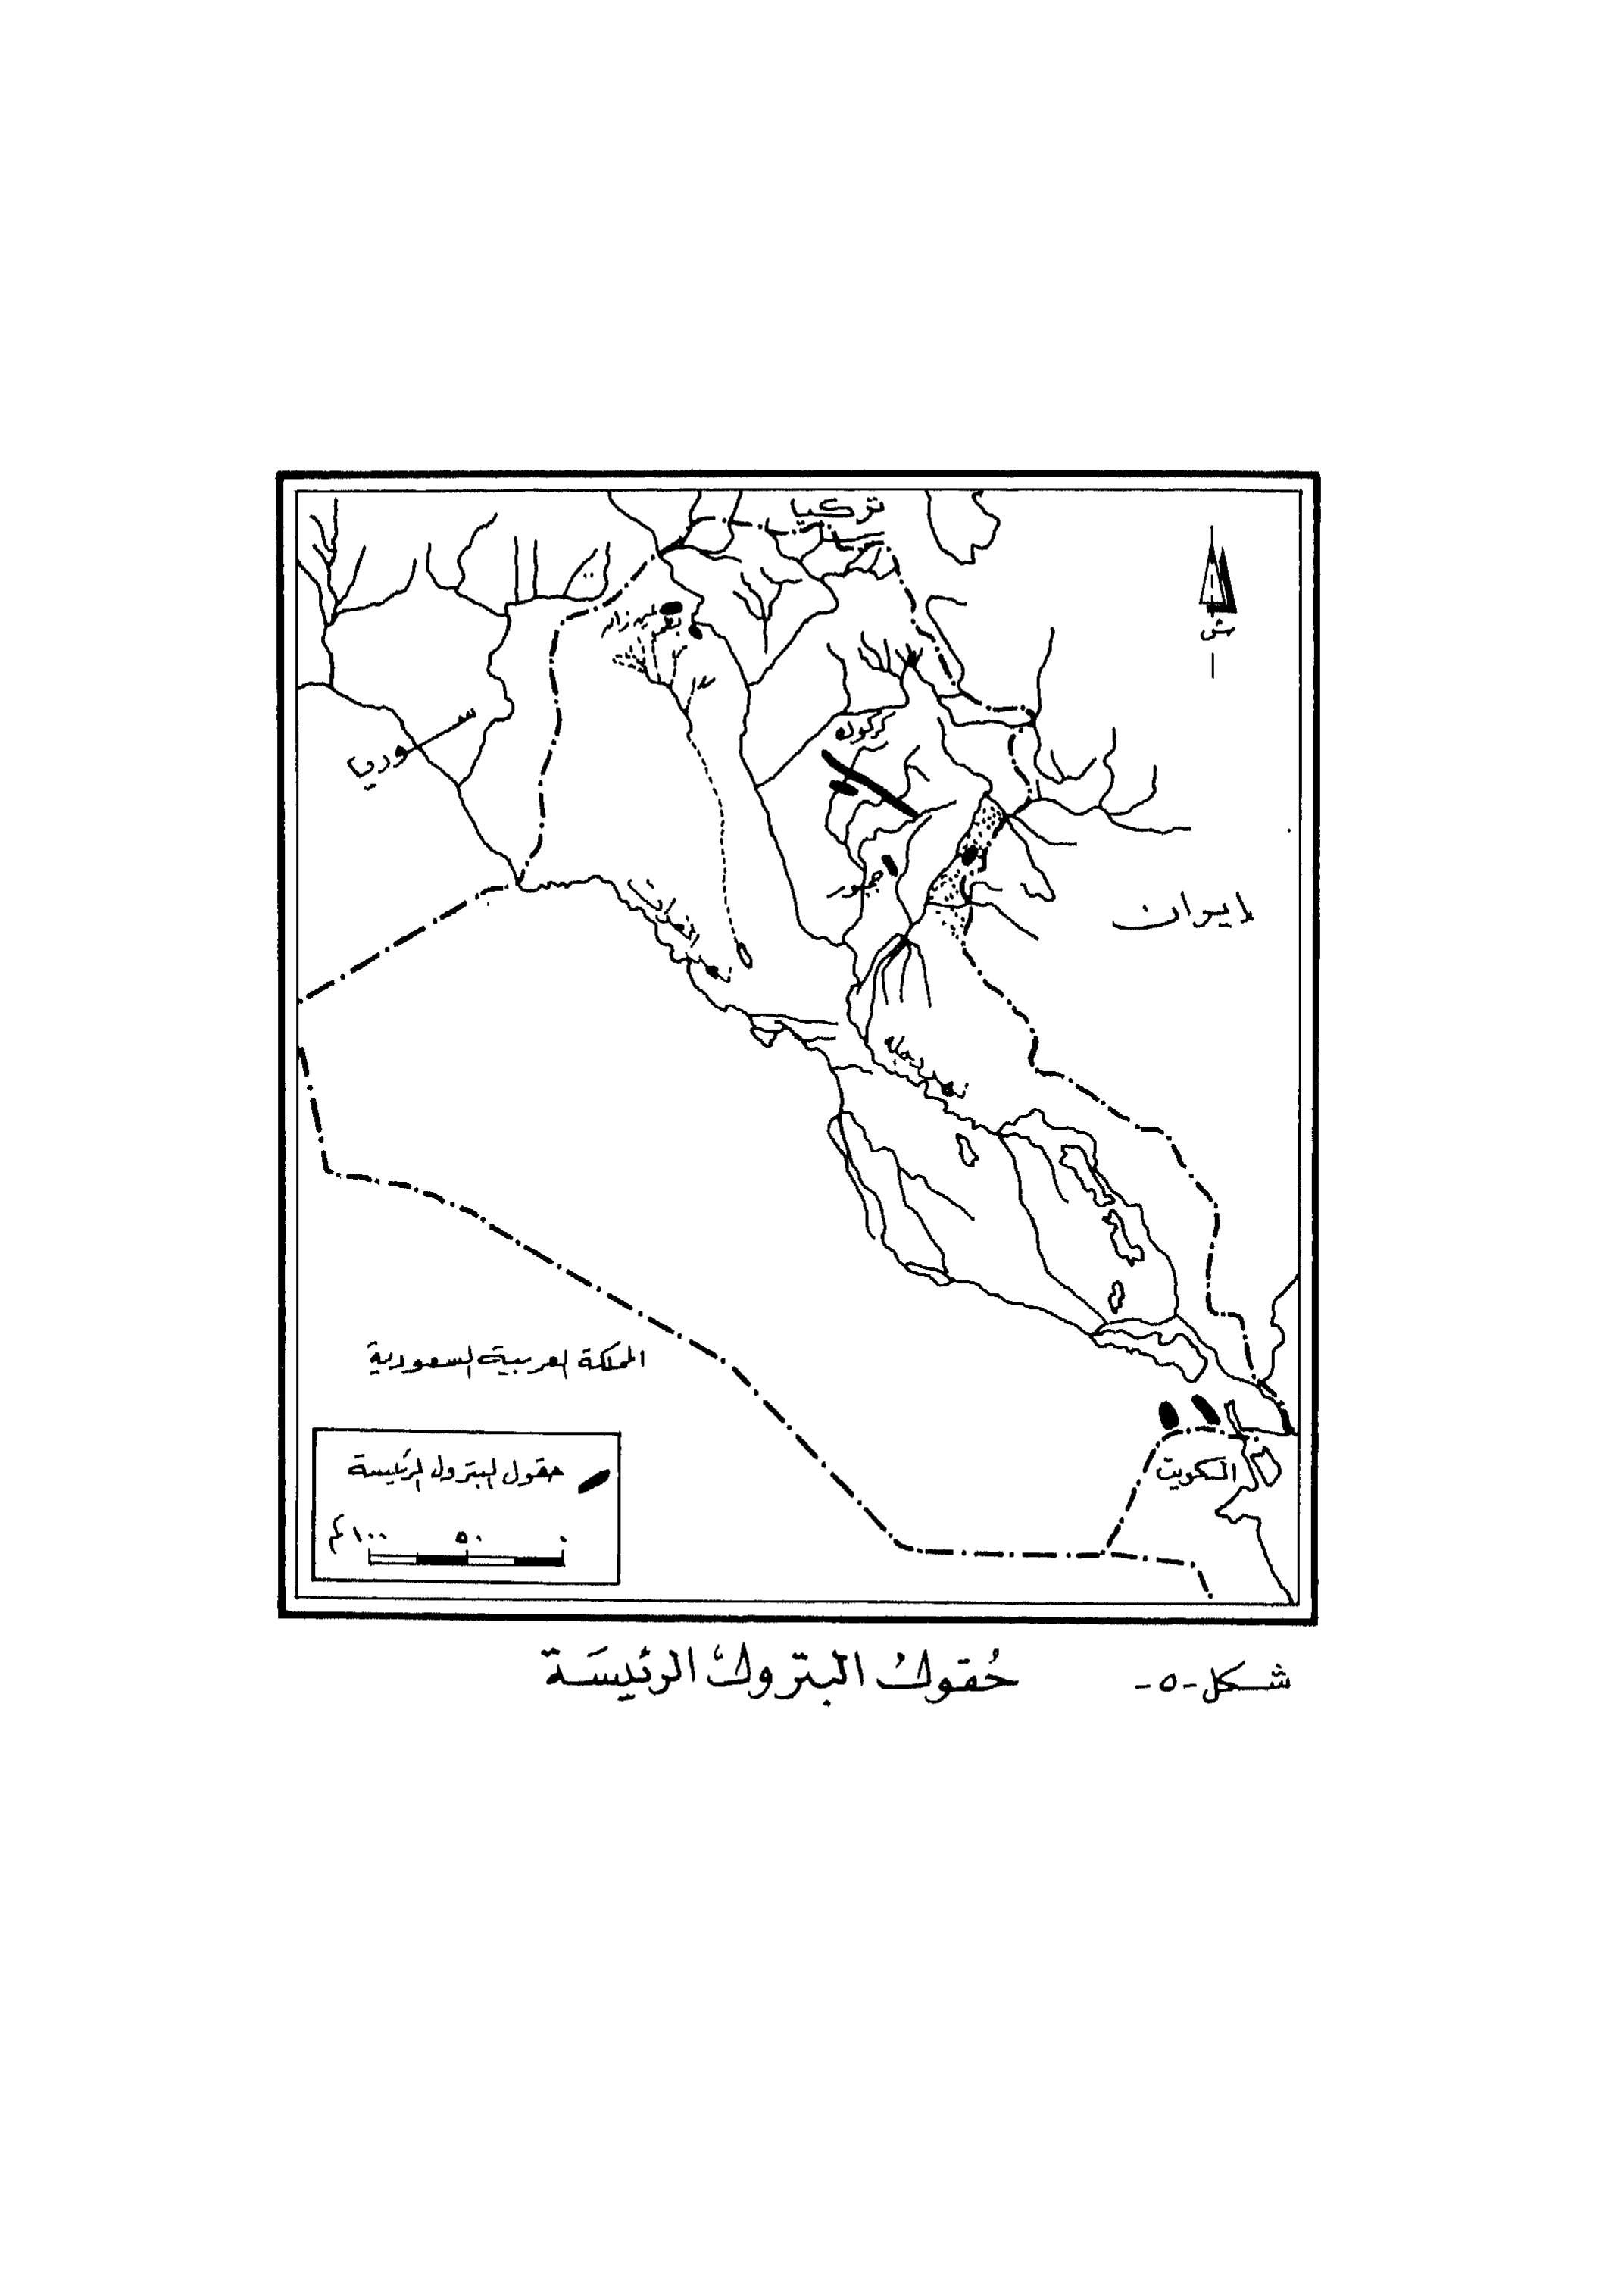 تركيا
ش
كركوك
سوريا
جمبور
إيران
نهر الفرات
نهر دجلة
المملكة العربية السعودية
الكويت
حقول البترول الرئيسة
٠ ٥٠ ١٠٠ كم
شكل -٥- حُقول البترول الرئيسَة